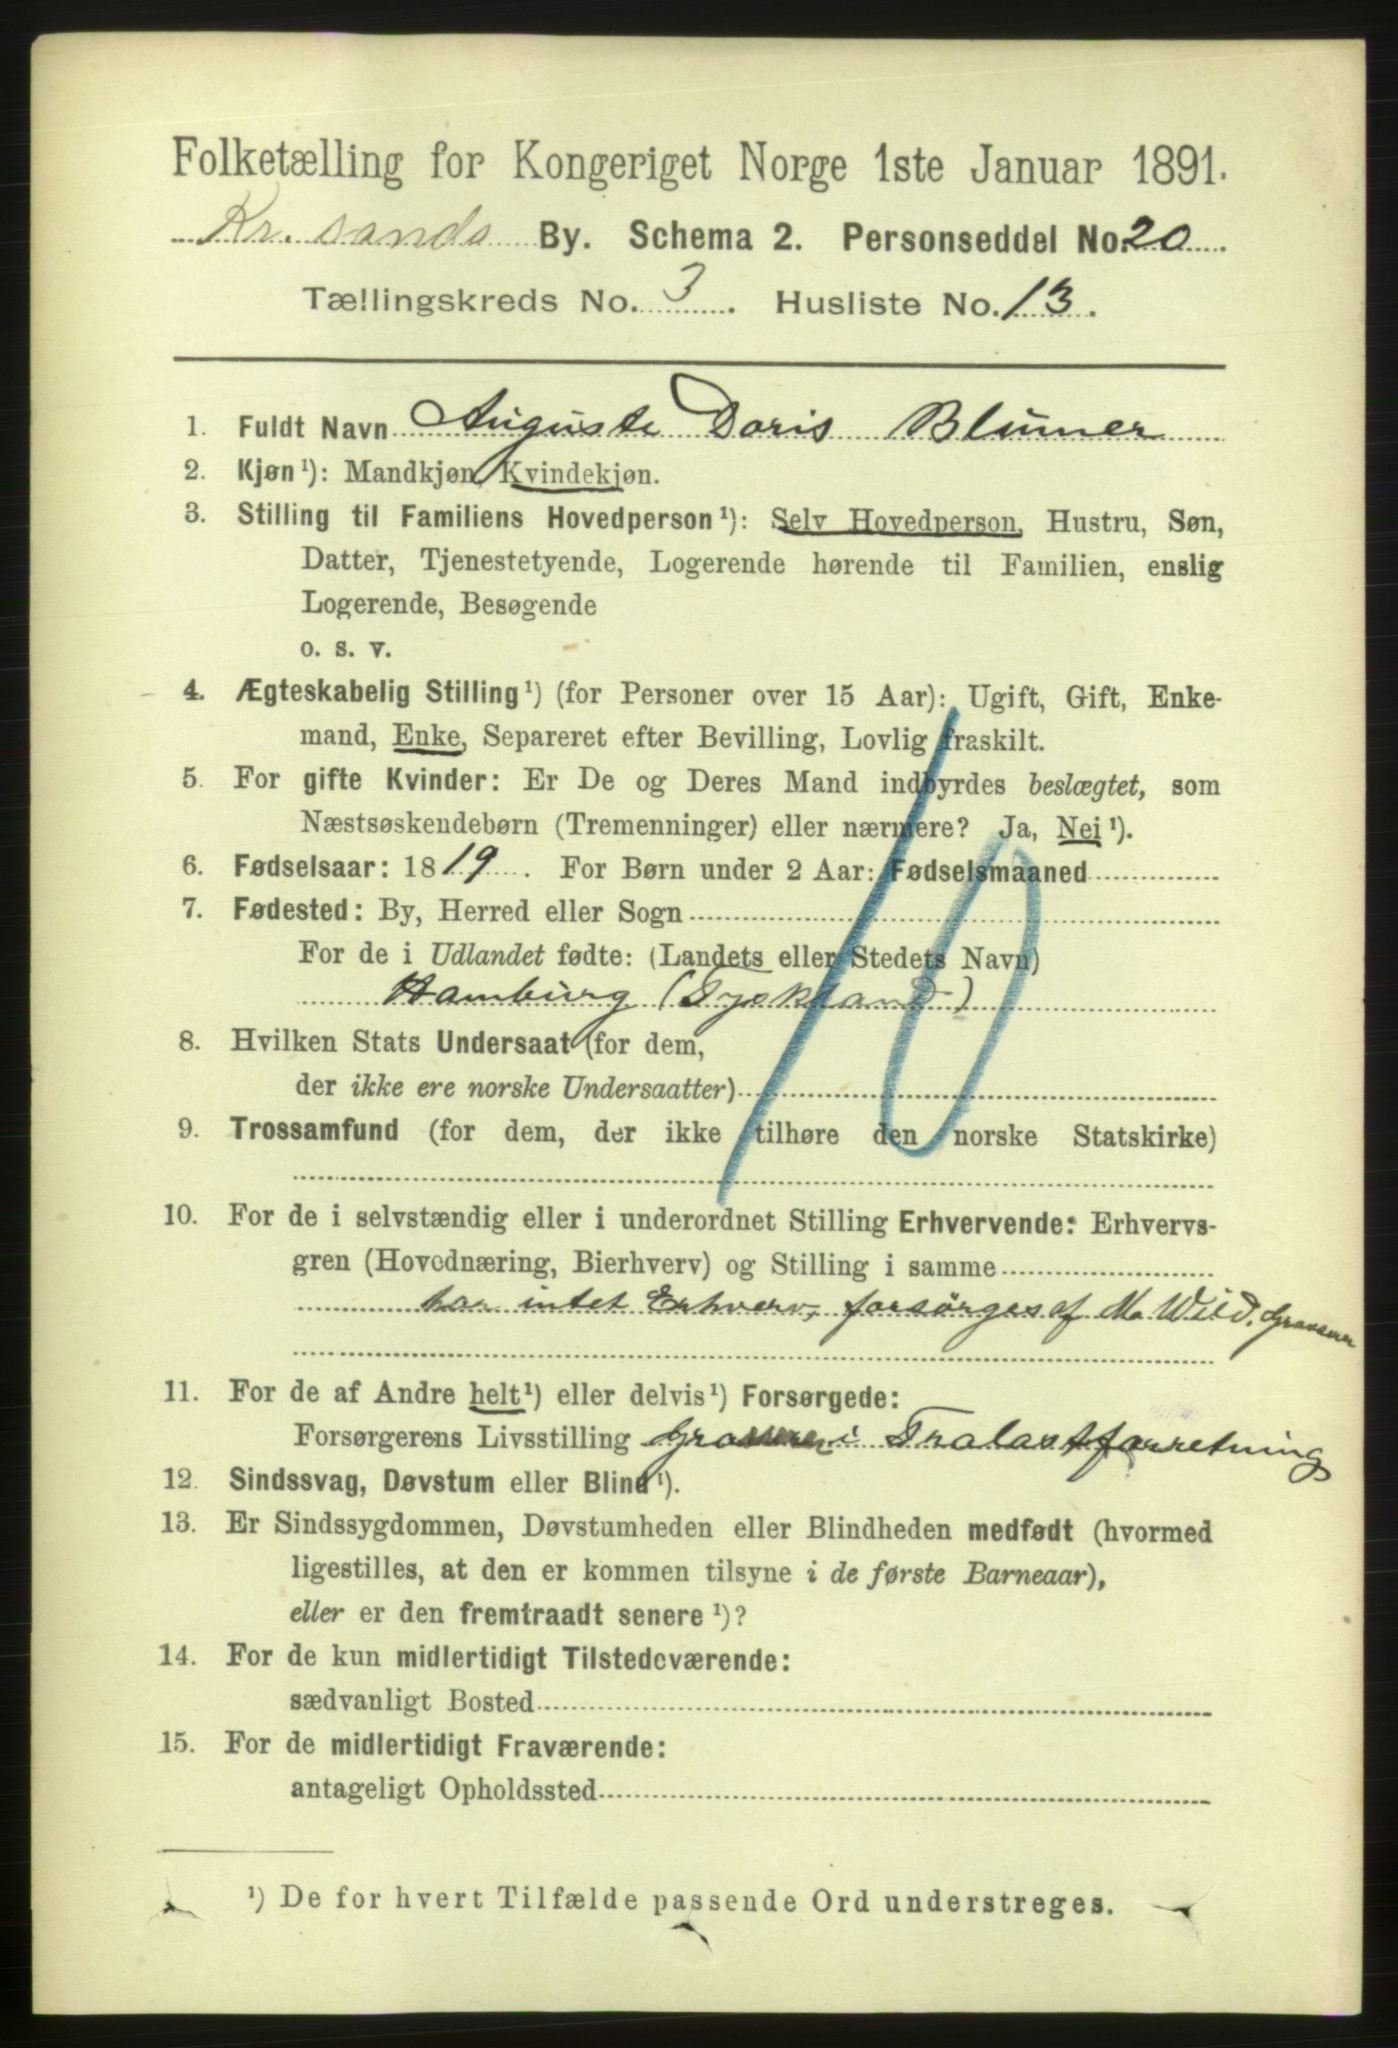 Folketælling for Kongeriget Norge 1ste Januar 1891.
Kr. sands By. Schema 2. Personseddel No. 20
Tællingskreds No. 3. Husliste No. 13.
1. Fuldt Navn Auguste Doris Blümer
2. Kjøn¹): Mandkjøn, Kvindekjøn.
3. Stilling til Familiens Hovedperson¹): Selv Hovedperson, Hustru, Søn,
Datter, Tjenestetyende, Logerende hørende til Familien, enslig
Logerende, Besøgende
o. s. v.
4. Ægteskabelig Stilling¹) (for Personer over 15 Aar): Ugift, Gift, Enke-
mand, Enke, Separeret efter Bevilling, Lovlig fraskilt.
5. For gifte Kvinder: Er De og Deres Mand indbyrdes beslægtet, som
Næstsøskendebørn (Tremenninger) eller nærmere? Ja, Nei¹).
6. Fødselsaar: 1819. For Børn under 2 Aar: Fødselsmaaned
7. Fødested: By, Herred eller Sogn
For de i Udlandet fødte: (Landets eller Stedets Navn)
Hamburg (Tyskland)
10
8. Hvilken Stats Undersaat (for dem,
der ikke ere norske Undersaatter)
9. Trossamfund (for dem, der ikke tilhøre den norske Statskirke)
10. For de i selvstændig eller i underordnet Stilling Erhvervende: Erhvervs-
gren (Hovednæring, Bierhverv) og Stilling i samme
har intet Erhverv, forsörges af M. Wild. Grosserer
11. For de af Andre helt¹) eller delvis¹) Forsørgede:
Forsørgerens Livsstilling Grosserer i Tralastforretning
12. Sindssvag, Døvstum eller Blind¹).
13. Er Sindssygdommen, Døvstumheden eller Blindheden medfødt (hvormed
ligestilles, at den er kommen tilsyne i de første Barneaar),
eller er den fremtraadt senere¹)?
14. For de kun midlertidigt Tilstedeværende:
sædvanligt Bosted
15. For de midlertidigt Fraværende:
antageligt Opholdssted
¹) De for hvert Tilfælde passende Ord understreges.